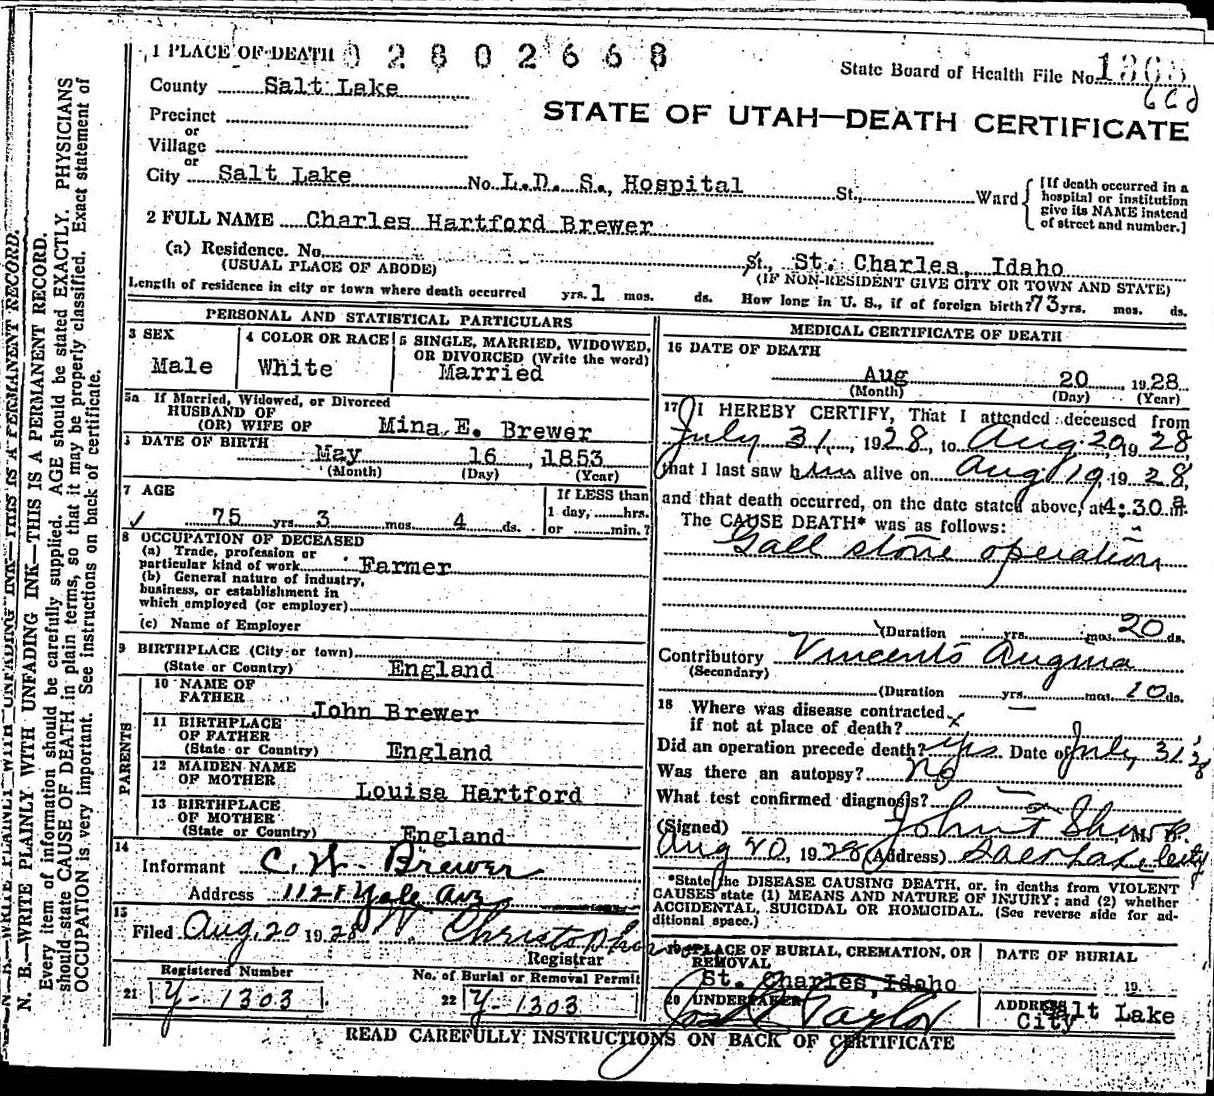 1 PLACE OF DEATH 02802668
State Board of Health File No.
County Salt Lake
STATE OF UTAH—DEATH CERTIFICATE
Precinct
or
Village
or
City Salt Lake No. L.D. S., Hospital St., Ward
[If death occurred in a
hospital or institution
give its NAME instead
of street and number.]
2 FULL NAME Charles Hartford Brewer
(a) Residence. No. St., St. Charles, Idaho
(USUAL PLACE OF ABODE) (IF NON-RESIDENT GIVE CITY OR TOWN AND STATE)
Length of residence in city or town where death occurred yrs. 1 mos. ds. How long in U. S., if of foreign birth? 73 yrs. mos. ds.
PERSONAL AND STATISTICAL PARTICULARS
3 SEX
Male
4 COLOR OR RACE
White
5 SINGLE, MARRIED, WIDOWED,
OR DIVORCED (Write the word)
Married
5a If Married, Widowed, or Divorced
HUSBAND OF
(OR) WIFE OF Mina E. Brewer
DATE OF BIRTH
May 16, 1853
(Month) (Day) (Year)
7 AGE
75 yrs. 3 mos. 4 ds.
If LESS than
1 day, hrs.
or min.?
8 OCCUPATION OF DECEASED
(a) Trade, profession or
particular kind of work Farmer
(b) General nature of industry,
business, or establishment in
which employed (or employer)
(c) Name of Employer
9 BIRTHPLACE (City or town)
(State or Country) England
PARENTS
10 NAME OF
FATHER
John Brewer
11 BIRTHPLACE
OF FATHER
(State or Country) England
12 MAIDEN NAME
OF MOTHER
Louisa Hartford
13 BIRTHPLACE
OF MOTHER
(State or Country) England
14
Informant C. W. Brewer
Address 1121 Yale Av
15
Filed Aug. 20 1928
Registrar
Registered Number
21 Y-1303
No. of Burial or Removal Permit
22 Y-1303
MEDICAL CERTIFICATE OF DEATH
16 DATE OF DEATH
Aug 20, 1928
(Month) (Day) (Year)
17 I HEREBY CERTIFY, That I attended deceased from
July 31, 1928, to Aug 20, 1928
that I last saw him alive on Aug 19 1928,
and that death occurred, on the date stated above, at 4:30 a m.
The CAUSE DEATH* was as follows:
Gall stone operation
(Duration yrs. mos. 20 ds.
Contributory Vincents Angina
(Secondary)
(Duration yrs. mos. 10 ds.
18 Where was disease contracted
if not at place of death?
Did an operation precede death? yes. Date of July 31, 28
Was there an autopsy? No
What test confirmed diagnosis?
(Signed) John F Sharp M. D.
Aug 20, 1928 (Address) Salt Lake City
*State the DISEASE CAUSING DEATH, or, in deaths from VIOLENT
CAUSES state (1) MEANS AND NATURE OF INJURY; and (2) whether
ACCIDENTAL, SUICIDAL OR HOMICIDAL. (See reverse side for ad-
ditional space.)
19 PLACE OF BURIAL, CREMATION, OR
REMOVAL
St. Charles, Idaho
DATE OF BURIAL
19
20 UNDERTAKER
Taylor
ADDRESS Salt Lake
City
READ CAREFULLY INSTRUCTIONS ON BACK OF CERTIFICATE
N. B.—WRITE PLAINLY WITH UNFADING INK—THIS IS A PERMANENT RECORD.
N. B.—WRITE PLAINLY WITH UNFADING INK—THIS IS A PERMANENT RECORD.
Every item of information should be carefully supplied. AGE should be stated EXACTLY. PHYSICIANS
should state CAUSE OF DEATH in plain terms, so that it may be properly classified. Exact statement of
OCCUPATION is very important. See instructions on back of certificate.